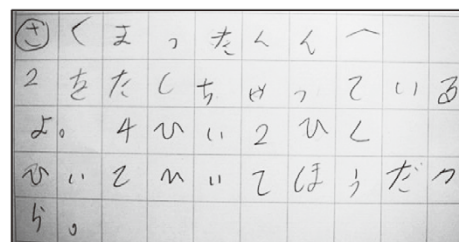 さくまったくんへ
2をたしちゃっている
よ。4ひいて2ひく
ひいてひいてほうだか
ら。